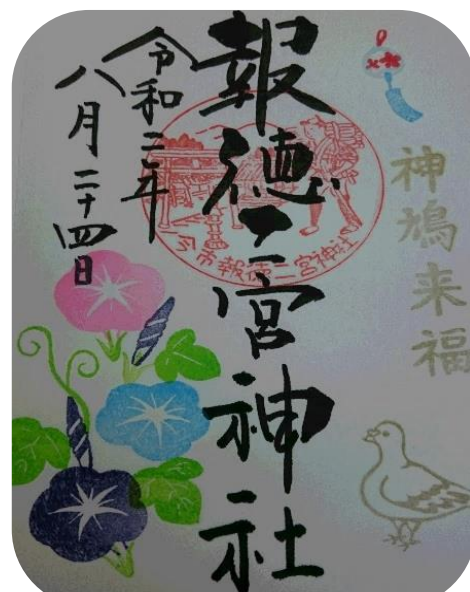 神鳩来福
報徳二宮神社
今市報徳二宮神社
令和二年
八月二十四日